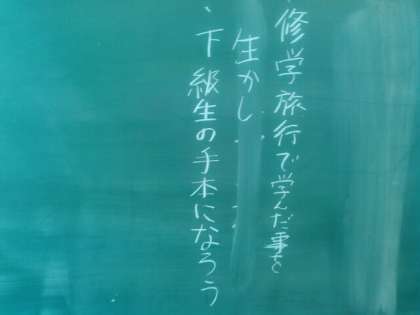 ・修学旅行で学んだ事を
生かし
・下級生の手本になろう